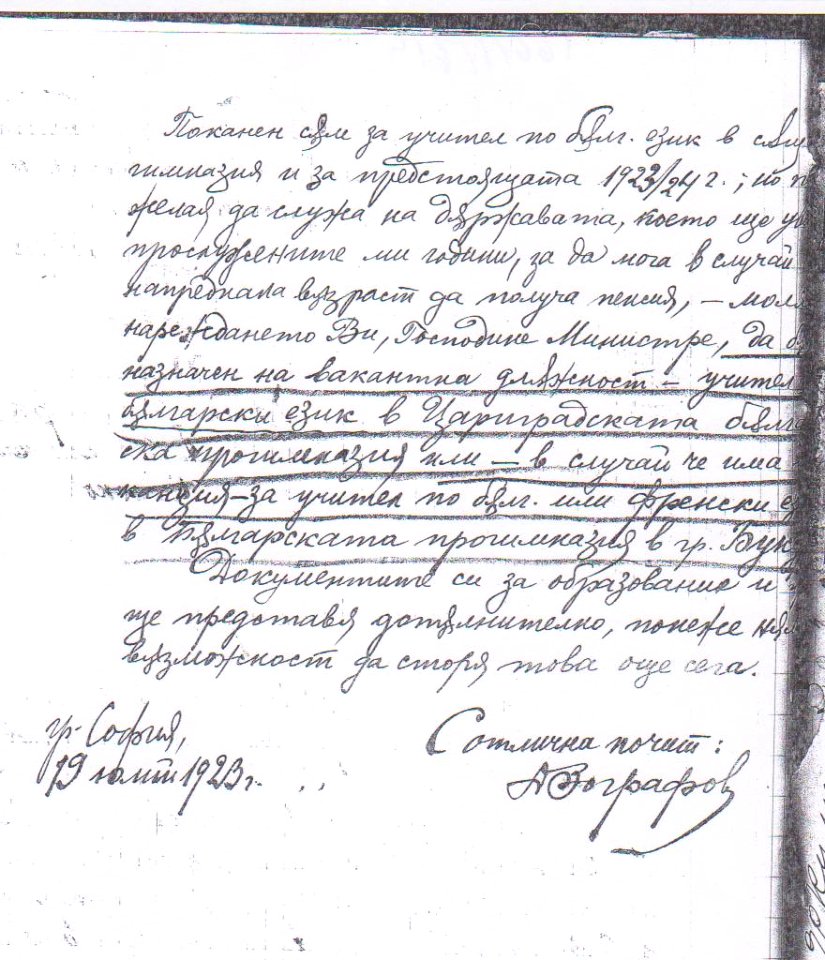 Поканен съм за учител по бълг. език в съща
гимназия и за предстоящата 1923/24 г.; но п
желая да служа на държавата, което ще у
прослужените ми години, за да мога в случай
напреднала възраст да получа пенсия, – мол
нареждането Ви, Господине Министре, да б
назначен на вакантна длъжност – учител
български език в Цариградската бълга
ска прогимназия или – в случай че има
канция – за учител по бълг. или френски е
в Българската прогимназия в гр. Бук
Документите си за образование и
ще представя допълнително, понеже ням
възможност да сторя това още сега.
гр. София,
19 юлий 1923 г.
С отлична почит:
АЗографов